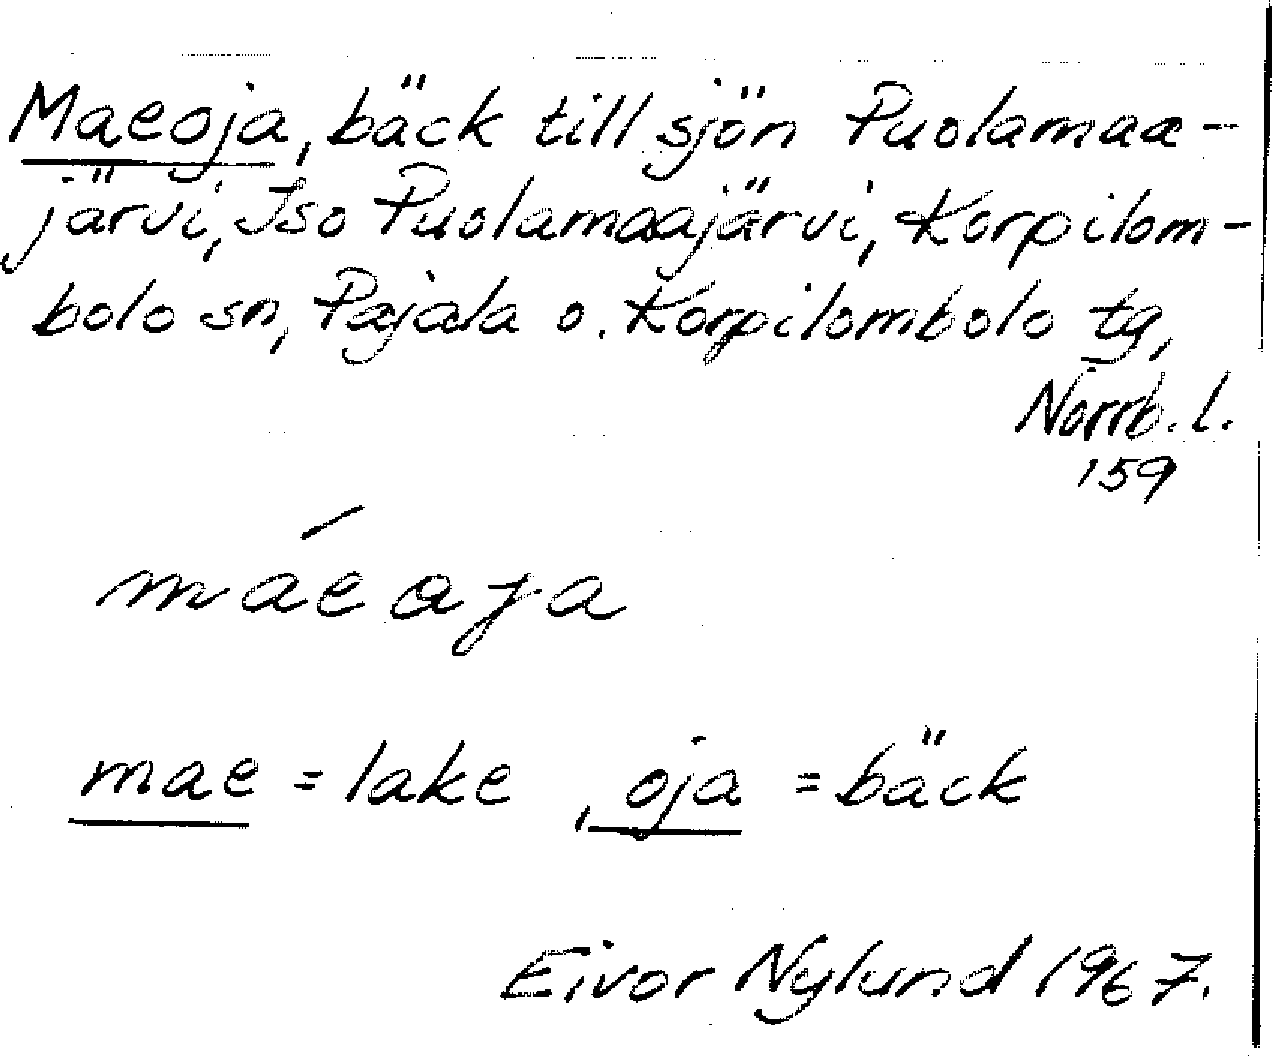 Maeoja, bäck till sjön Puolamaa-
järvi, Iso Puolamaajärvi, Korpilom-
bolo sn, Pajala o. Korpilombolo tg,
Norrb. l.
159
máeoja
mae = lake, oja = bäck
Eivor Nylund 1967.